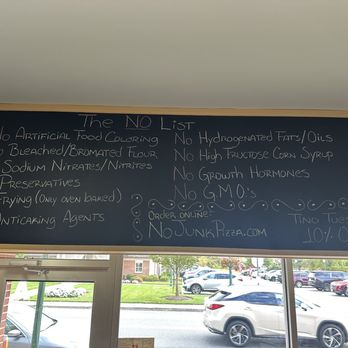 The NO List
No Artificial Food Coloring
No Bleached/Bromated Flour
Sodium Nitrates/Nitrites
Preservatives
Frying (Only oven baked)
Anticaking Agents
No Hydrogenated Fats/Oils
No High Fructose Corn Syrup
No Growth Hormones
No GMO's
Order online:
NoJunkPizza.com
Tino Tues
10% O